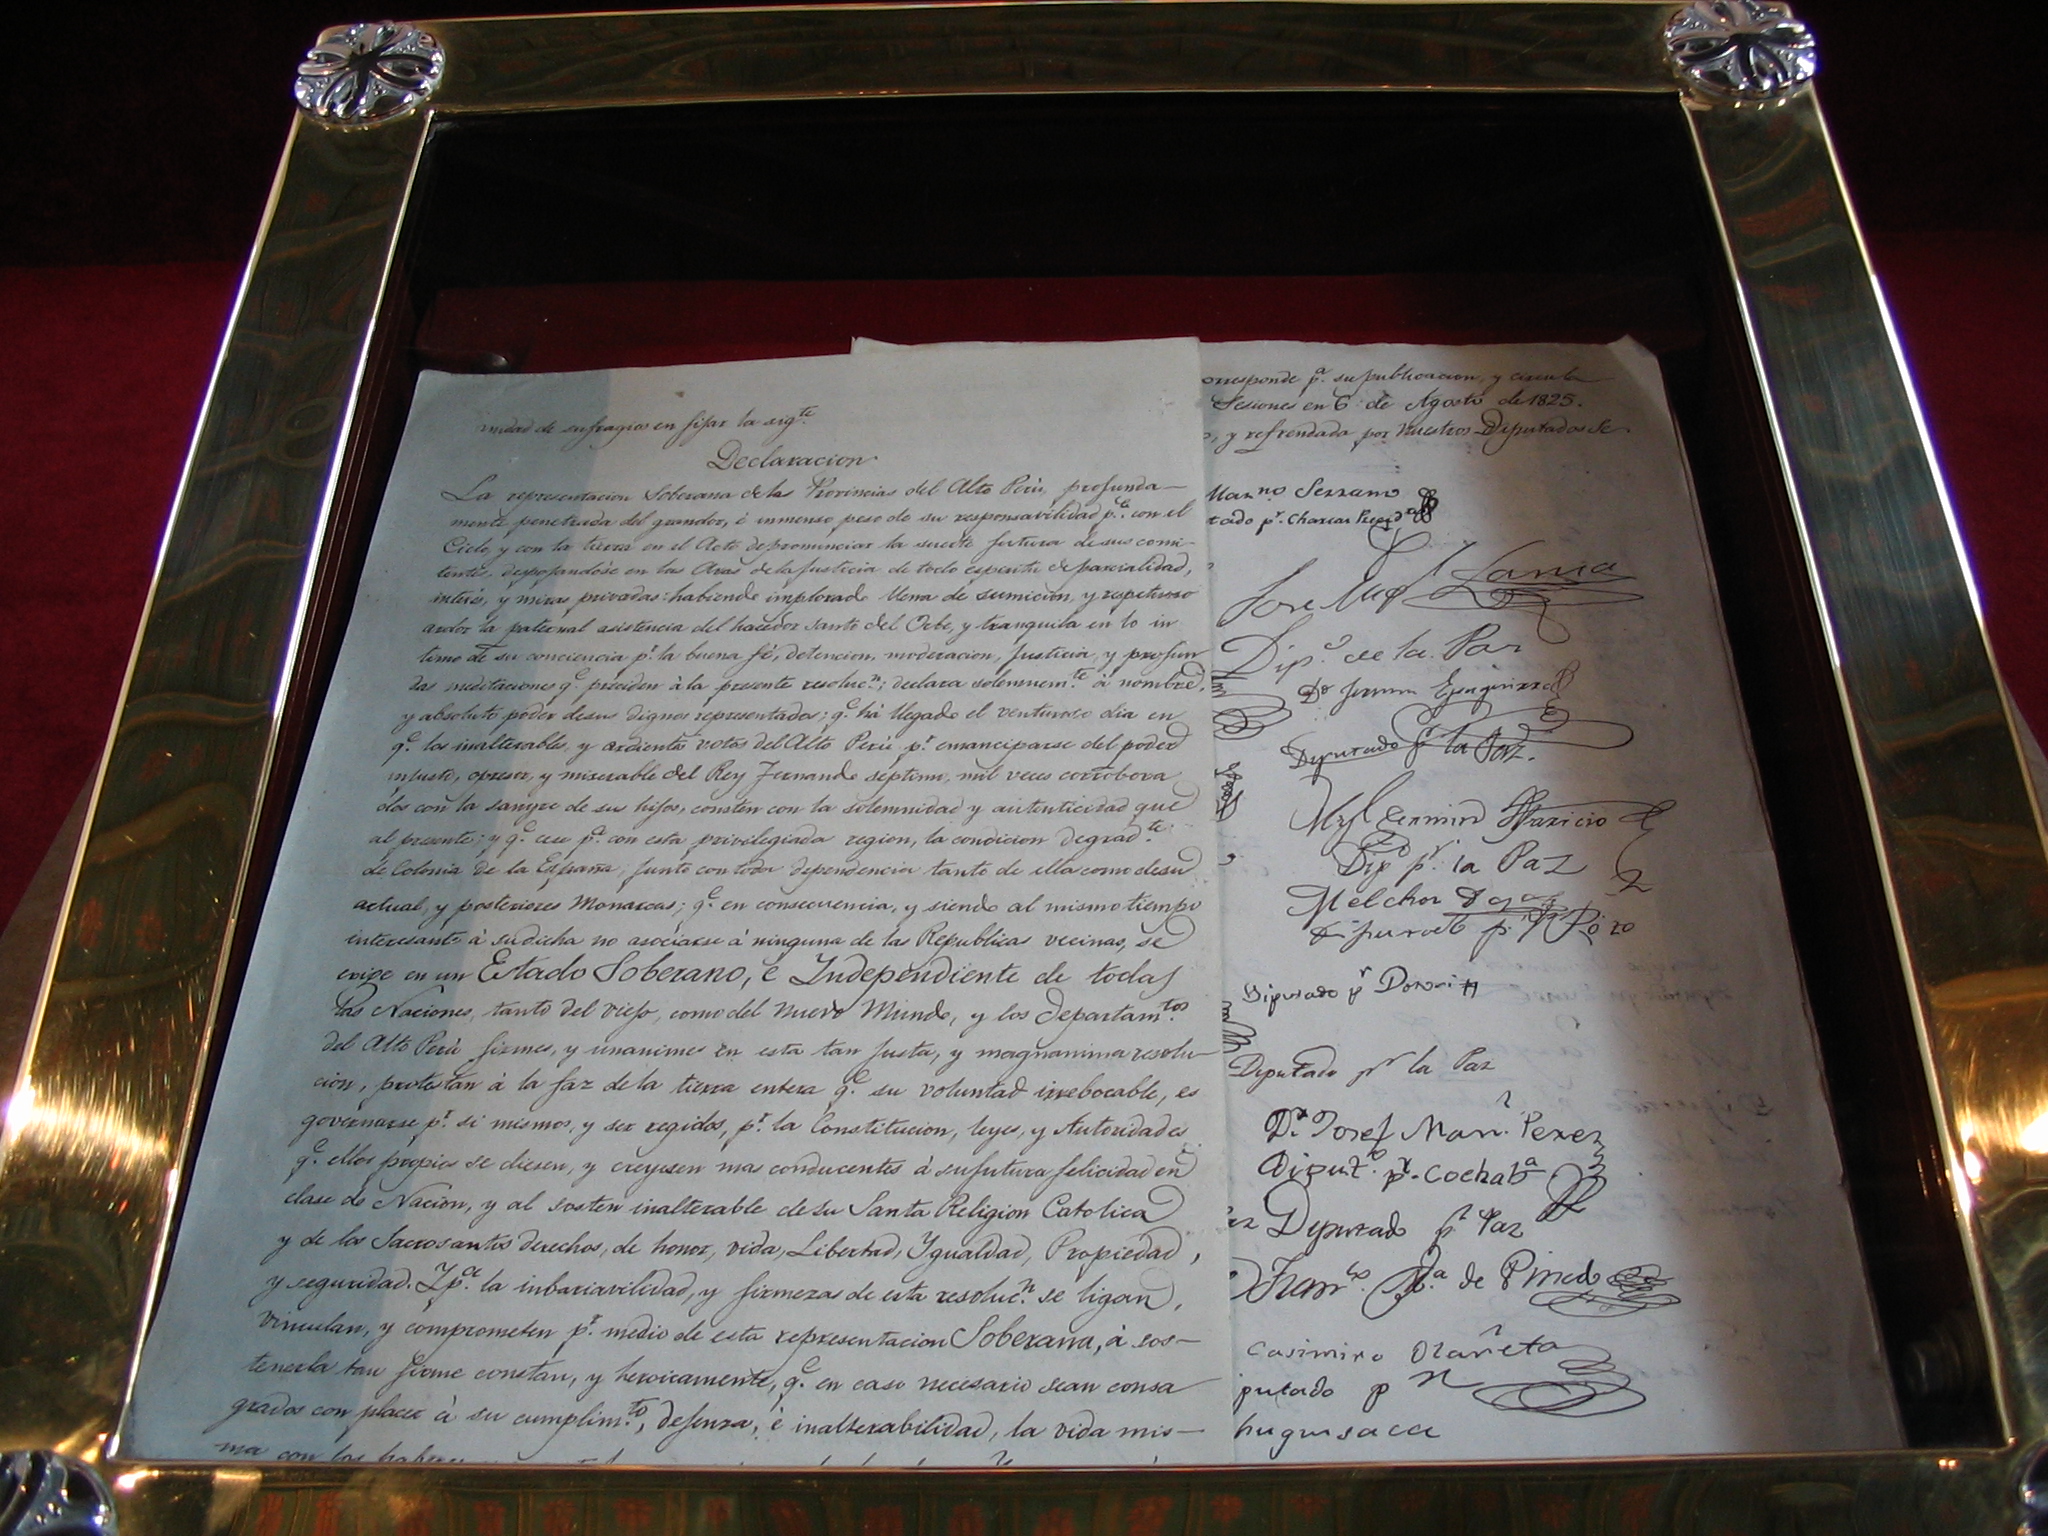 nidad de sufragios en fijar la sigte
Declaracion
La representacion Soberana de las Provincias del Alto Perú, profunda-
mente penetrada del grandor, é inmenso peso de su responsavilidad pa. con el
Cielo, y con la tierra en el Acto de pronunciar la suerte futura de sus comi-
tentes, despojandose en las Aras de la Justicia de todo espiritu de parcialidad,
interés, y miras privadas: habiendo implorado llena de sumicion, y respetuoso
ardor la paternal asistencia del hacedor santo del Orbe, y tranquila en lo in
timo de su conciencia pr. la buena fé, detencion, moderacion, Justicia, y profun
das meditaciones qe. preciden á la presente resolucn; declara solemnemte. á nombre,
y absoluto poder de sus dignos representados; qe. há llegado el venturoso dia en
qe. los inalterables, y ardientes votos del Alto Perú pr. emanciparse del poder
injusto, opresor, y miserable del Rey Fernando septimo, mil veces corrobora
dos con la sangre de sus hijos, consten con la solemnidad y autenticidad que
al presente; y qe. cese pa. con esta privilegiada region, la condicion degradte.
de Colonia de la España, junto con toda dependencia tanto de ella como de su
actual, y posteriores Monarcas; qe. en consecuencia, y siendo al mismo tiempo
interesante á su dicha no asociarse á ninguna de las Republicas vecinas, se
erige en un Estado Soberano, é Independiente de todas
las Naciones, tanto del viejo, como del nuevo Mundo, y los departamtos.
del Alto Perú firmes, y unanimes en esta tan justa, y magnanima resolu-
cion, protestan á la faz de la tierra entera qe. su voluntad irrebocable, es
governarse pr. si mismos, y ser regidos, pr. la Constitucion, leyes, y Autoridades
qe. ellos propios se diesen, y creyesen mas conducentes á su futura felicidad en
clase de Nacion, y al sosten inalterable de su Santa Religion Catolica
y de los Sacrosantos derechos, de honor, vida, Libertad, Ygualdad, Propiedad,
y seguridad. Y pa. la inbariavilidad, y firmeza de esta resolucn. se ligan,
vinculan, y comprometen pr. medio de esta representacion Soberana, á sos-
tenerla tan firme constan, y heroicamente, qe. en caso necesario sean consa
grados con placer á su cumplimto, defensa, é inalterabilidad, la vida mis-
ma con los
orresponde pa. su publicacion, y circula
Sesiones en 6 de Agosto de 1825.
y refrendada por nuestros Diputados Se
Marno. Serrano
tado pr. Charcas
Jose Migl Lanza
Dipo. de la Paz
Diputado pr. la Paz.
Fermin Aparicio
Dipo pr. la Paz
Melchor Daza
Diputado pr.
Diputado pr
Diputado pr la Paz
Dr. Josef Man. Perez
Diput.o pr. Cochaba
Diputado pr Paz
Franco. Ma. de Pinedo
Casimiro Olañeta
putado pr
huquisaca